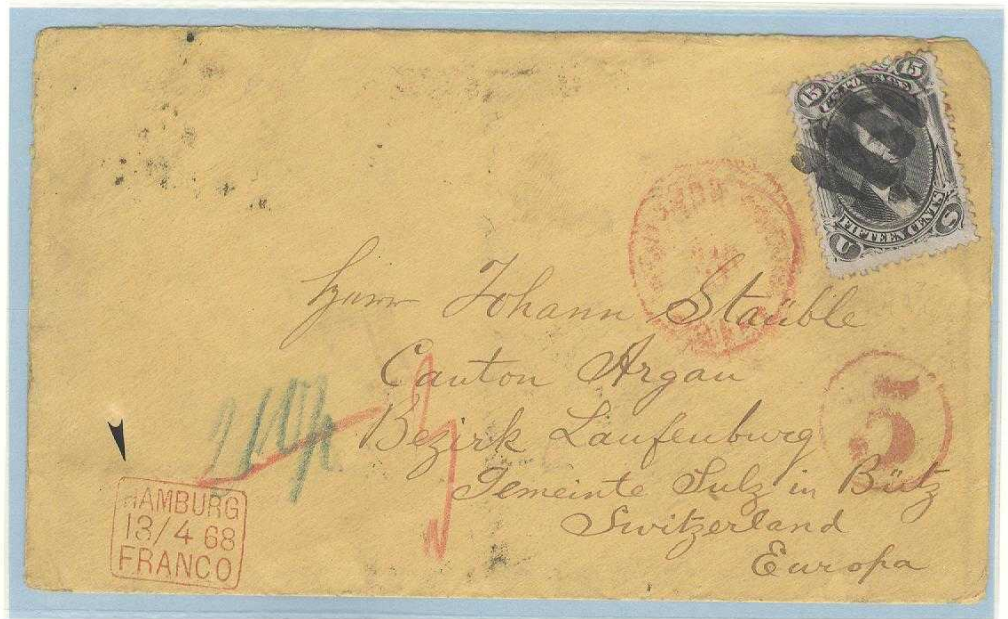 15 15
U S
FIFTEEN CENTS
Herrn Johann Stäuble
Canton Argau
Bezirk Laufenburg
5
Gemeinte Sulz in Bütz
Switzerland
Europa
HAMBURG
13/4 68
FRANCO